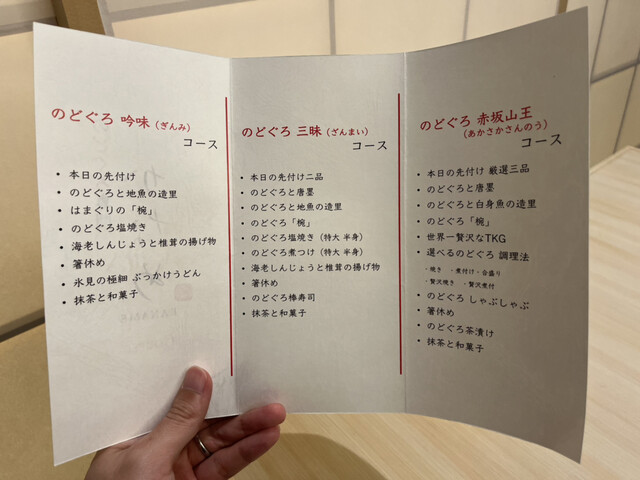 のどぐろ 吟味（ぎんみ）
コース
・本日の先付け
・のどぐろと地魚の造里
・はまぐりの「椀」
・のどぐろ塩焼き
・海老しんじょうと椎茸の揚げ物
・箸休め
・氷見の極細 ぶっかけうどん
・抹茶と和菓子
のどぐろ 三昧（ざんまい）
コース
・本日の先付け二品
・のどぐろと唐墨
・のどぐろと地魚の造里
・のどぐろ「椀」
・のどぐろ塩焼き（特大 半身）
・のどぐろ煮つけ（特大 半身）
・海老しんじょうと椎茸の揚げ物
・箸休め
・のどぐろ棒寿司
・抹茶と和菓子
のどぐろ 赤坂山王
（あかさかさんのう）
コース
・本日の先付け 厳選三品
・のどぐろと唐墨
・のどぐろと白身魚の造里
・のどぐろ「椀」
・世界一贅沢なTKG
・選べるのどぐろ 調理法
・焼き ・煮付け・合盛り
・贅沢焼き ・贅沢煮付
・のどぐろ しゃぶしゃぶ
・箸休め
・のどぐろ茶漬け
・抹茶と和菓子